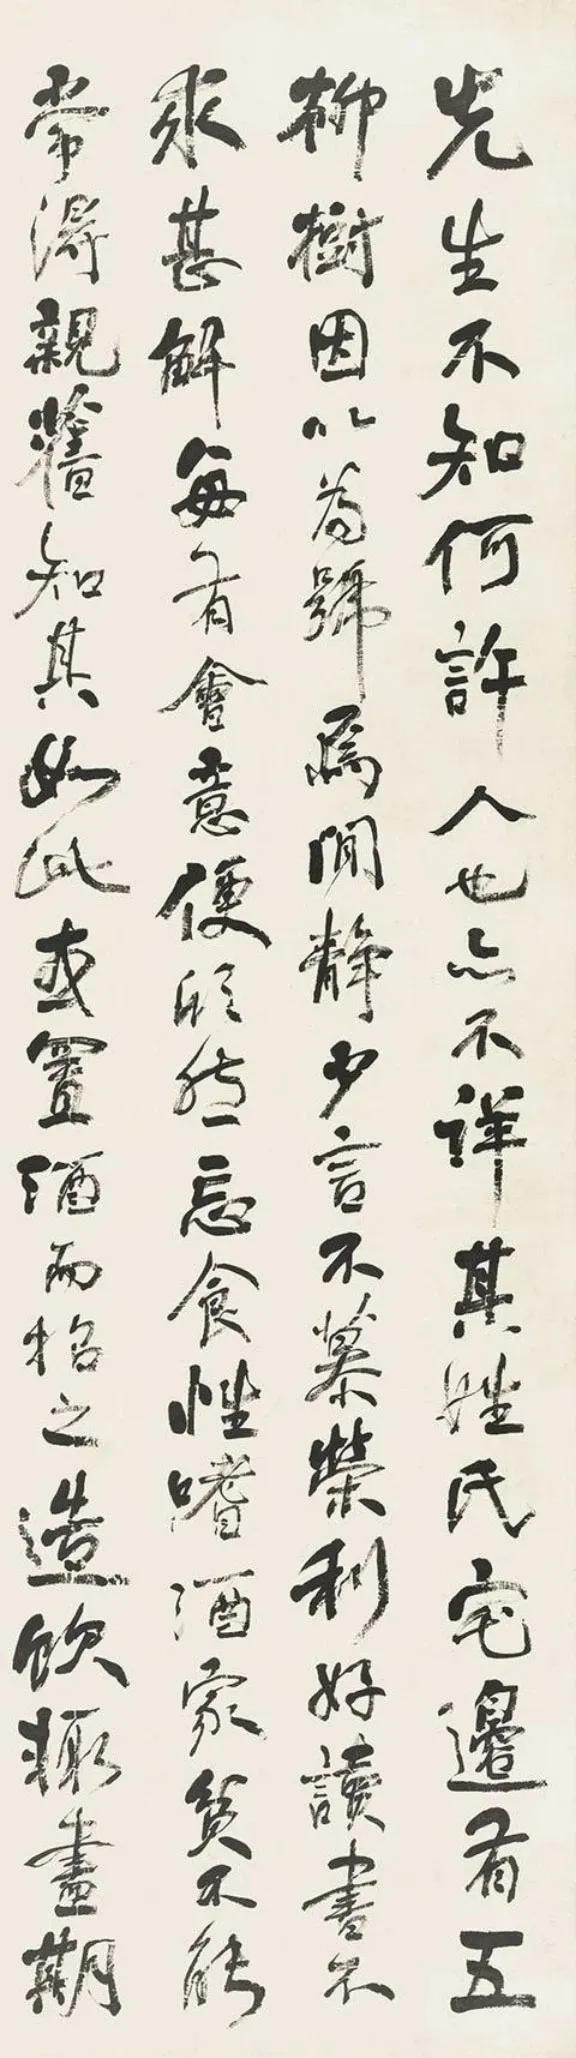 先生不知何許人也亦不詳其姓氏宅邊有五
柳樹因以為號焉閒静少言不慕榮利好讀書不
求甚解每有會意便欣然忘食性嗜酒家貧不能
常得親舊知其如此或置酒而招之造飲輒盡期